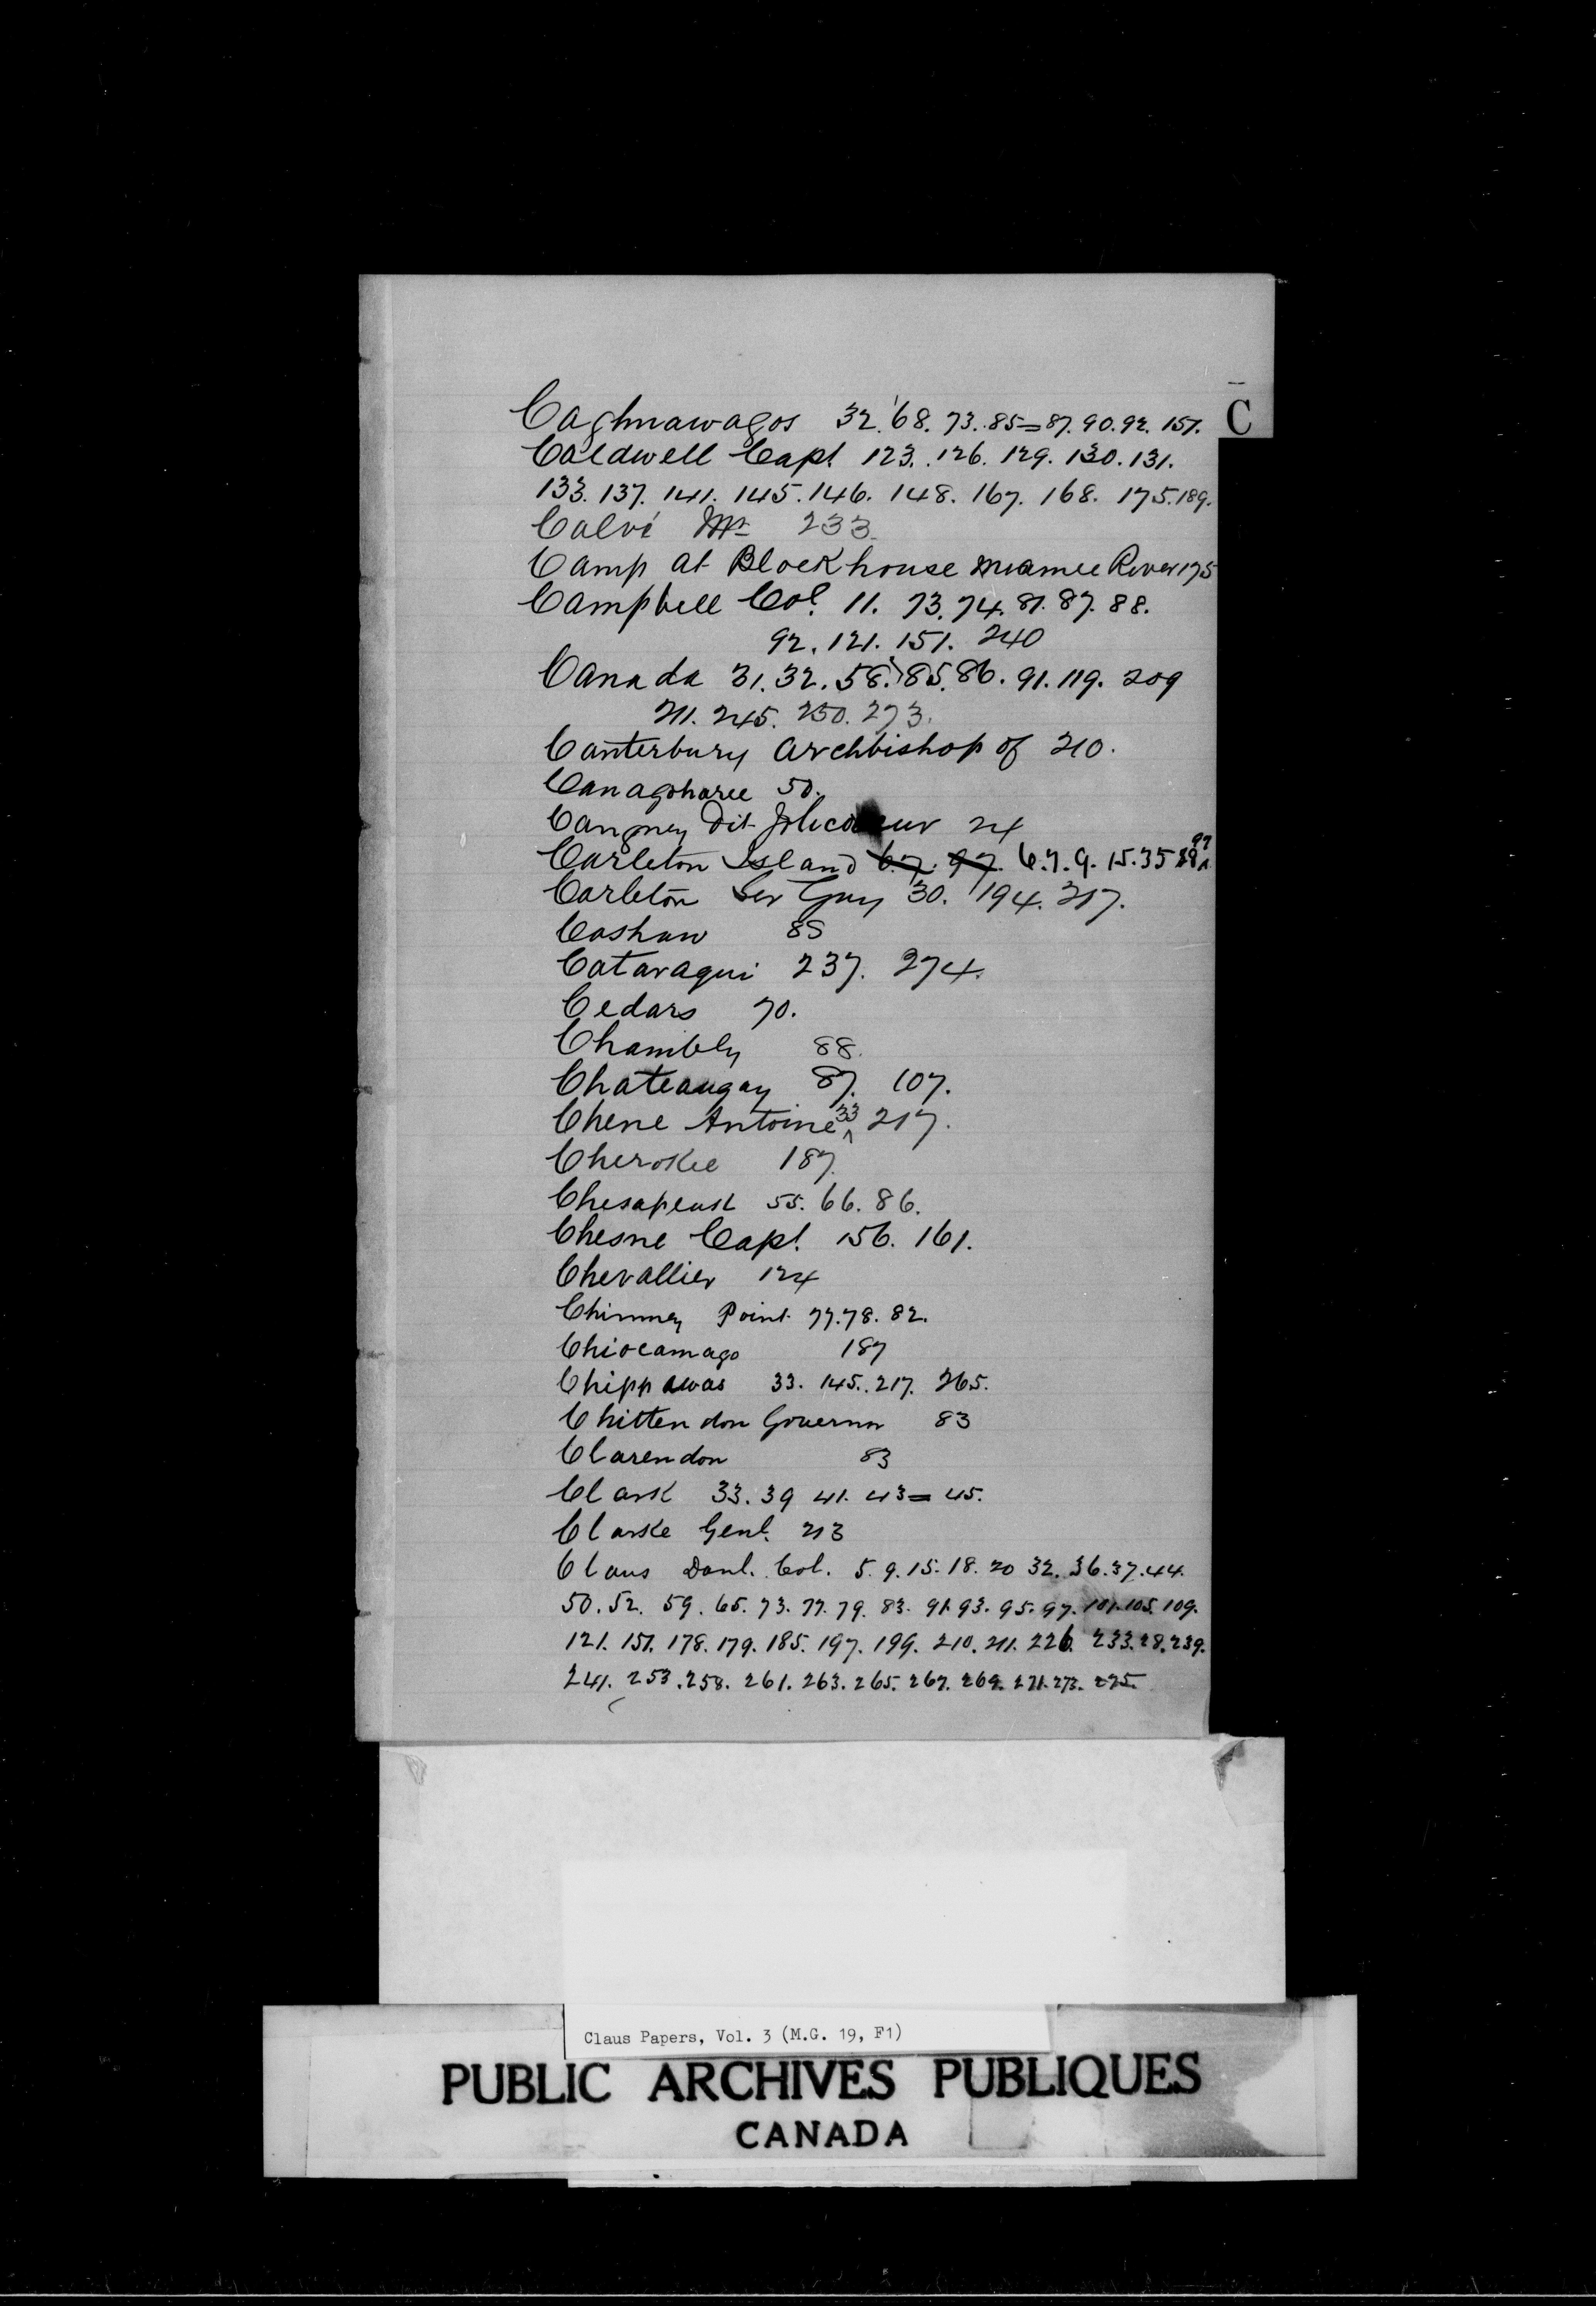 C
Caghnawagos 32. 68. 73. 85=87. 90. 92. 151.
Caldwell Capt. 123. 126. 129. 130. 131.
133. 137. 141. 145. 146. 148. 167. 168. 175. 189.
Calvé Mr 233.
Camp at Blockhouse Miamee River 175
Campbell Col. 11. 73. 74. 81. 87. 88.
92. 121. 151. 240
Canada 31. 32. 58. 85. 86. 91. 119. 209
211. 245. 250. 273.
Canterbury Archbishop of 210.
Canagoharee 50.
Dit 24
Carleton Island 6.7. 97. 6.7.9. 15.35 97
Carleton Sir Guy 30. 194. 217.
Cashaw 85
Cataraqui 237. 274.
Cedars 70.
Chambly 88.
Chateaugay 87. 107.
Chene Antoine 33 217.
Cherokee 187.
Chesapeast 55. 66. 86.
Chesne Capt. 156. 161.
Chevallier 124
Chimney Point 77. 78. 82.
Chiocamago 187
Chippawas 33. 145. 217. 265.
Chittendon Governor 83
Clarendon 83
Clark 33. 39 41. 43=45.
Clarke Genl. 213
Claus Danl. Col. 5. 9. 15. 18. 20 32. 36. 37. 44.
50. 52. 59. 65. 73. 77. 79. 83. 91. 93. 95. 97. 101. 105. 109.
121. 151. 178. 179. 185. 197. 199. 210. 211. 226. 233. 28. 239.
241. 253. 258. 261. 263. 265. 267. 269. 271. 273. 275.
Claus Papers, Vol. 3 (M.G. 19, F1)
PUBLIC ARCHIVES PUBLIQUES
CANADA